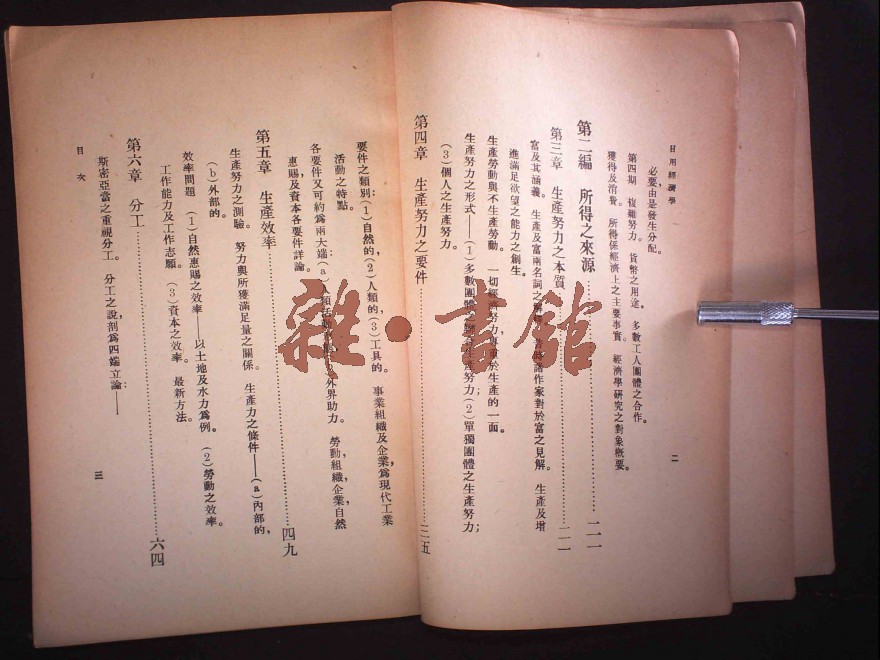 日用經濟學
二
必要，由是發生分配。
第四期　複雜努力。　貨幣之用途。　多數工人團體之合作。
獲得及消費。　所得係經濟上之主要事實。　經濟學研究之對象概要。
第二編　所得之來源……二一
第三章　生產努力之本質……二一
富及其涵義。　生產及富兩名詞之　作家對於富之見解。　生產及增
進滿足欲望之能力之創生。
生產勞動與不生產勞動。　一切經濟努力　於生產的一面。
生產努力之形式——(1)多數團體之　生產努力；(2)單獨團體之生產努力；
(3)個人之生產努力。
第四章　生產努力之要件……三五
要件之類別：(1)自然的，(2)人類的，(3)工具的。　事業組織及企業，爲現代工業
活動之特點。
各要件又可約爲兩大端：(a)人類活　外界助力。　勞動，組織，企業，自然
惠賜及資本各要件詳論。
第五章　生產效率……四九
生產努力之測驗。　努力與所獲滿足量之關係。　生產力之條件——(a)內部的，
(b)外部的。
效率問題　(1)自然惠賜之效率——以土地及水力爲例。　(2)勞動之效率。
工作能力及工作志願。　(3)資本之效率。　最新方法。
第六章　分工……六四
斯密亞當之重視分工。　分工之說，剖爲四端立論：——
目次
三
雜·書館